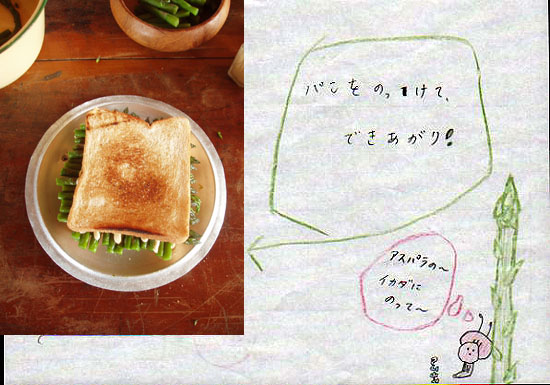 パンをのっけて、
できあがり!
アスパラの〜
イカダに
のって〜